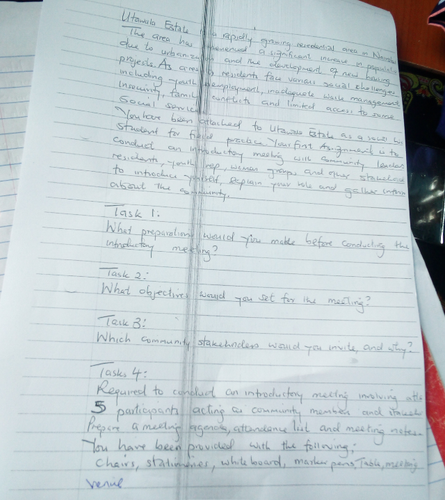 Utawala Estate is a rapidly growing residential area in Nairobi
The area has experienced a significant increase in population
due to urbanization and the development of new housing
projects. As area residents face various social challenges
including youth unemployment, inadequate waste management
insecurity, family conflicts and limited access to some
social services.
You have been attached to Utawala Estate as a social
student for field practice. Your first assignment is to
conduct an introductory meeting with community leaders
residents, youth rep, women groups and other
to introduce yourself, explain your role and gather
about the community.
Task 1:
What preparations would you make before conducting the
introductory meeting?
Task 2:
What objectives would you set for the meeting?
Task 3:
Which community stakeholders would you invite, and why?
Tasks 4:
Required to conduct an introductory meeting involving
5 participants acting as community members and
Prepare a meeting agenda, attendance list and meeting notes
You have been provided with the following;
Chairs, stationaries, white board, marker pens, Table, meeting
venue